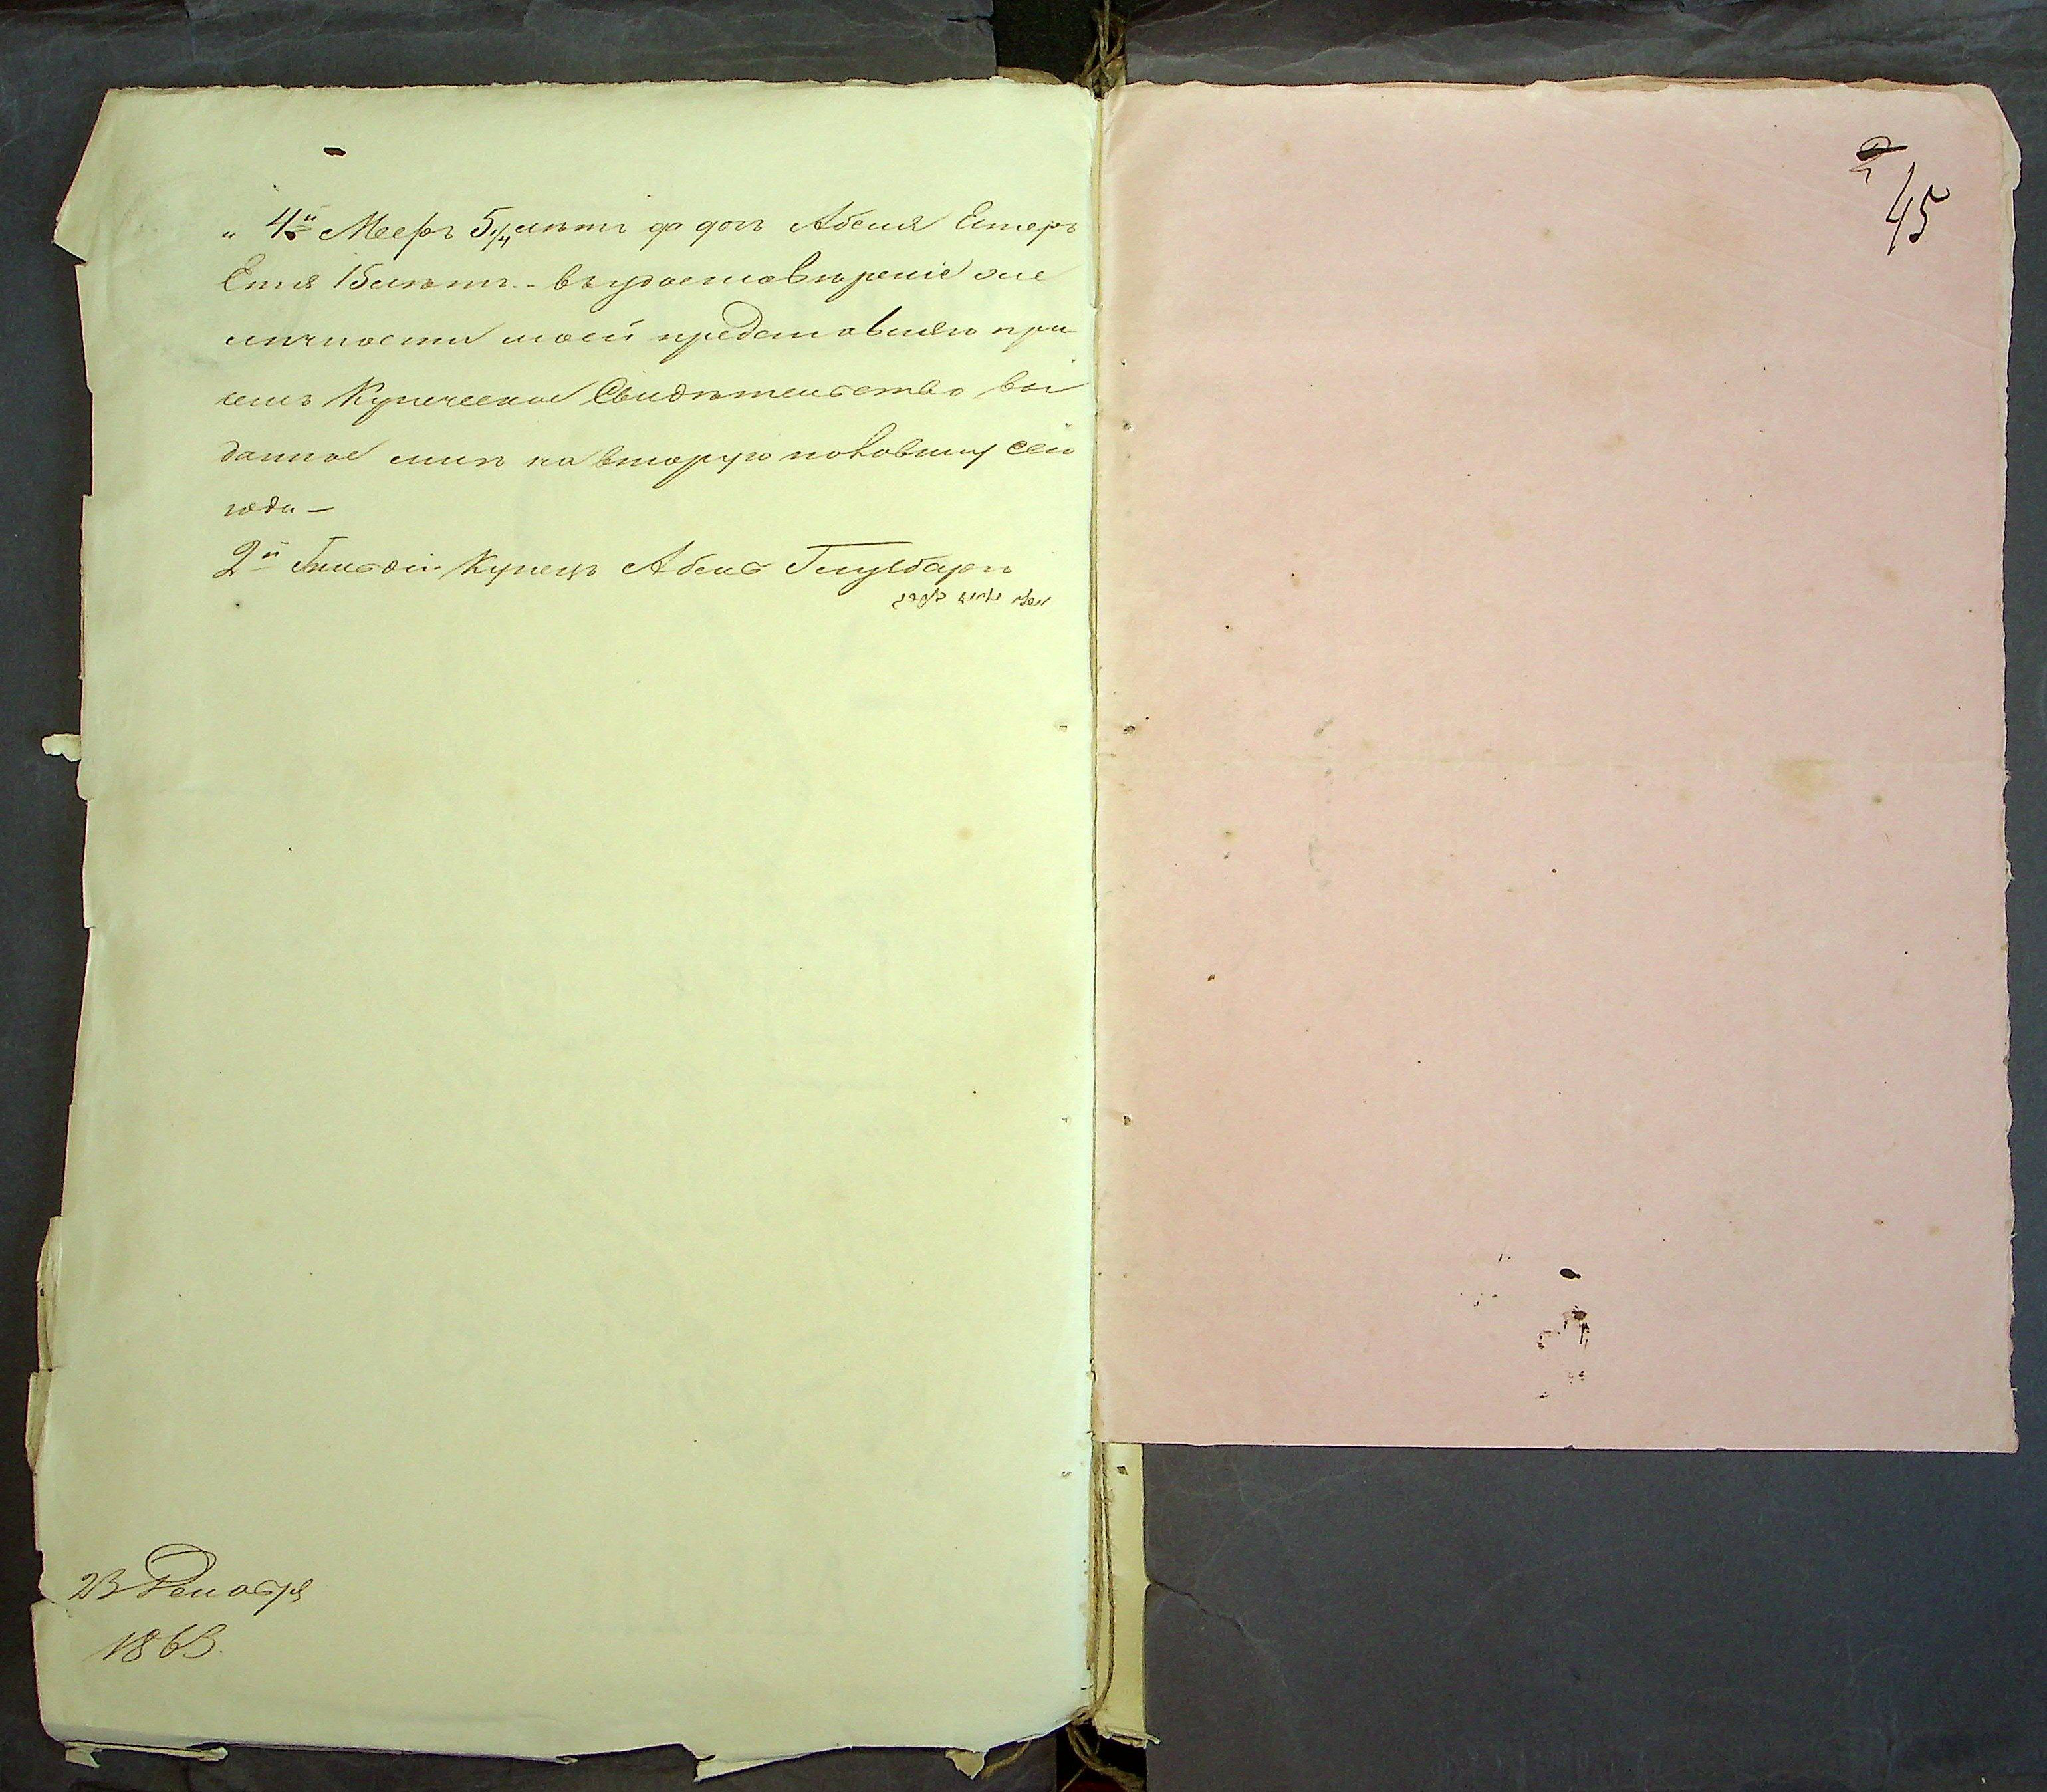 „ 4й Мееръ 5¼ лѣтъ да дочь Абеля Естеръ
Етля 15 лѣтъ. - въ удостовѣреніе же
личности моей представляю при
семъ Купеческое Свидѣтельство вы
данное мнѣ на вторую половину сего
года —
2й Гильдіи Купецъ Абель
23 Декабря
1863.
45